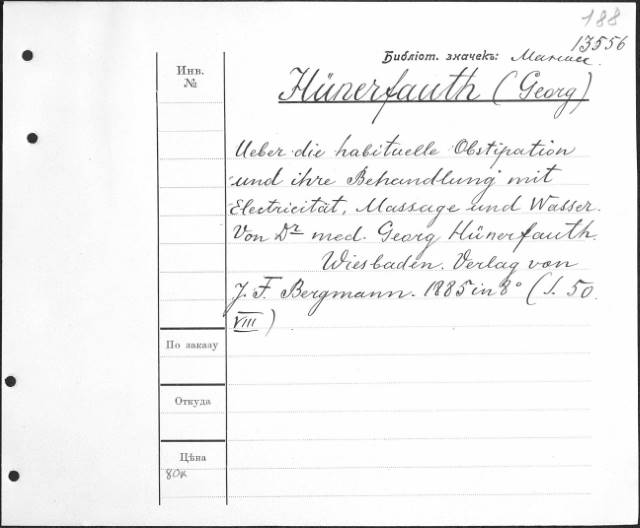 188
13556
Библіот. значекъ:
Инв.
№
Hünerfauth (Georg)
Ueber die habituelle Obstipation
und ihre Behandlung mit
Electricität, Massage und Wasser.
Von Dr med. Georg Hünerfauth.
Wiesbaden. Verlag von
J. F. Bergmann. 1885 in 8° (S. 50.
VIII)
По заказу
Откуда
Цѣна
80к